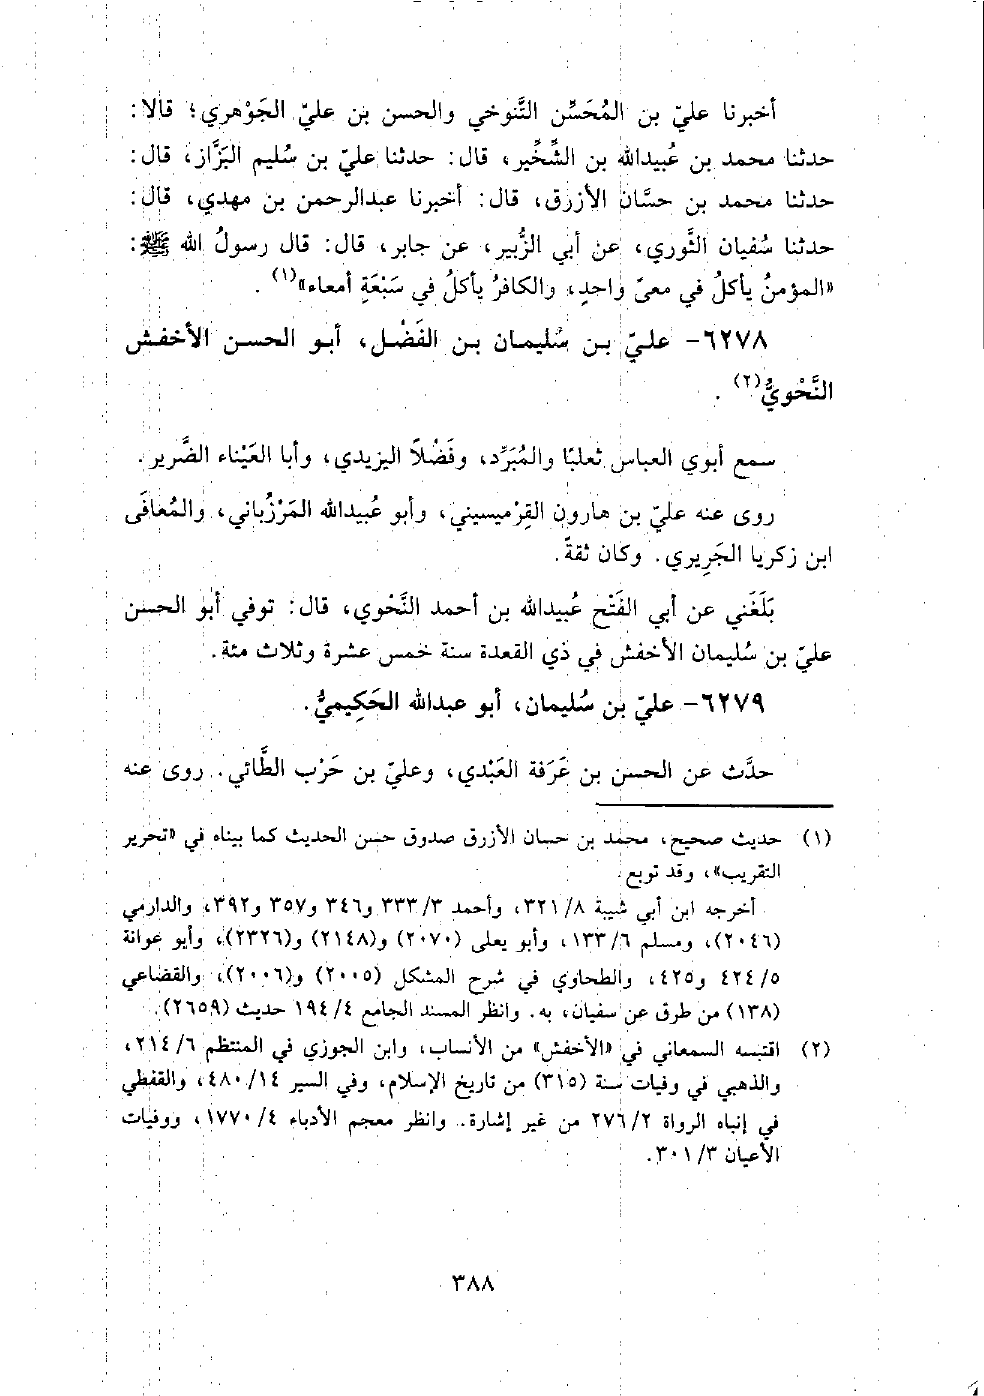 أخبرنا عليّ بن المُحَسِّن التَّنوخي والحسن بن عليّ الجَوْهري؛ قالا:
حدثنا محمد بن عُبيدالله بن الشِّخِّير، قال: حدثنا عليّ بن سُليم البَزَّاز، قال:
حدثنا محمد بن حسَّان الأزرق، قال: أخبرنا عبدالرحمن بن مهدي، قال:
حدثنا سُفيان الثَّوري، عن أبي الزُّبير، عن جابر، قال: قال رسولُ الله ﷺ:
«المؤمنُ يأكلُ في معىً واحدٍ، والكافرُ يأكلُ في سَبْعَةِ أمعاء»(١).
٦٢٧٨- عليّ بن سُليمان بن الفَضْل، أبو الحسن الأخفش
النَّحْويُّ(٢).
سمع أبوي العباس ثعلبًا والمُبَرِّد، وفَضْلاً اليزيدي، وأبا العَيْناء الضَّرير.
روى عنه عليّ بن هارون القِرْميسيني، وأبو عُبيدالله المَرْزُباني، والمُعافَى
ابن زكريا الجَرِيري. وكان ثقةً.
بَلَغَني عن أبي الفَتْح عُبيدالله بن أحمد النَّحْوي، قال: توفي أبو الحسن
عليّ بن سُليمان الأخفش في ذي القعدة سنة خمس عشرة وثلاث مئة.
٦٢٧٩- عليّ بن سُليمان، أبو عبدالله الحَكِيميُّ.
حدَّث عن الحسن بن عَرَفة العَبْدي، وعليّ بن حَرْب الطَّائي. روى عنه
(١) حديث صحيح، محمد بن حسان الأزرق صدوق حسن الحديث كما بيناه في «تحرير
التقريب»، وقد توبع.
أخرجه ابن أبي شيبة ٨/ ٣٢١، وأحمد ٣/ ٣٣٣ و٣٤٦ و٣٥٧ و٣٩٢، والدارمي
(٢٠٤٦)، ومسلم ٦/ ١٣٣، وأبو يعلى (٢٠٧٠) و(٢١٤٨) و(٢٣٢٦)، وأبو عوانة
٥/ ٤٢٤ و٤٢٥، والطحاوي في شرح المشكل (٢٠٠٥) و(٢٠٠٦)، والقضاعي
(١٣٨) من طرق عن سفيان، به. وانظر المسند الجامع ٤/ ١٩٤ حديث (٢٦٥٩).
(٢) اقتبسه السمعاني في «الأخفش» من الأنساب، وابن الجوزي في المنتظم ٦/ ٢١٤،
والذهبي في وفيات سنة (٣١٥) من تاريخ الإسلام، وفي السير ١٤/ ٤٨٠، والقفطي
في إنباه الرواة ٢/ ٢٧٦ من غير إشارة. وانظر معجم الأدباء ٤/ ١٧٧٠، ووفيات
الأعيان ٣/ ٣٠١.
٣٨٨